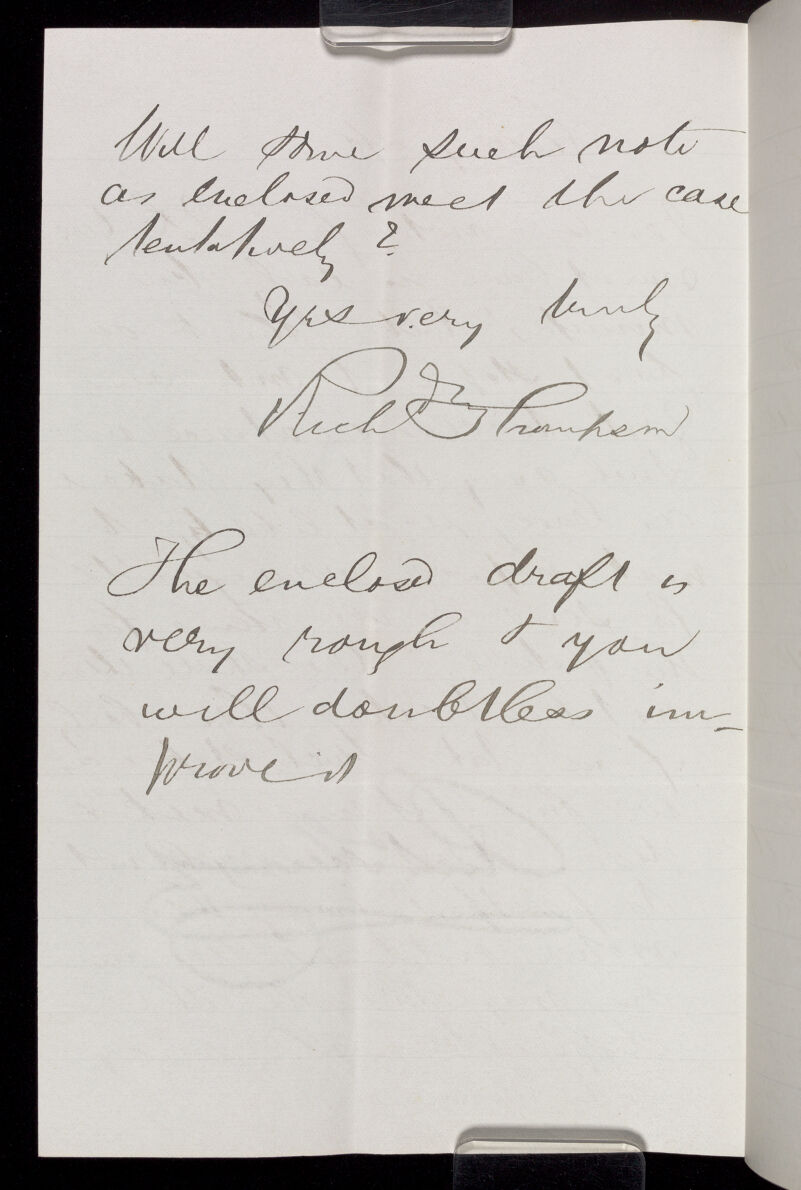 Will some such note
as enclosed meet the case
tentatively?
Yrs very truly
Rich Thompson
The enclosed draft is
very rough & you
will doubtless im-
prove it